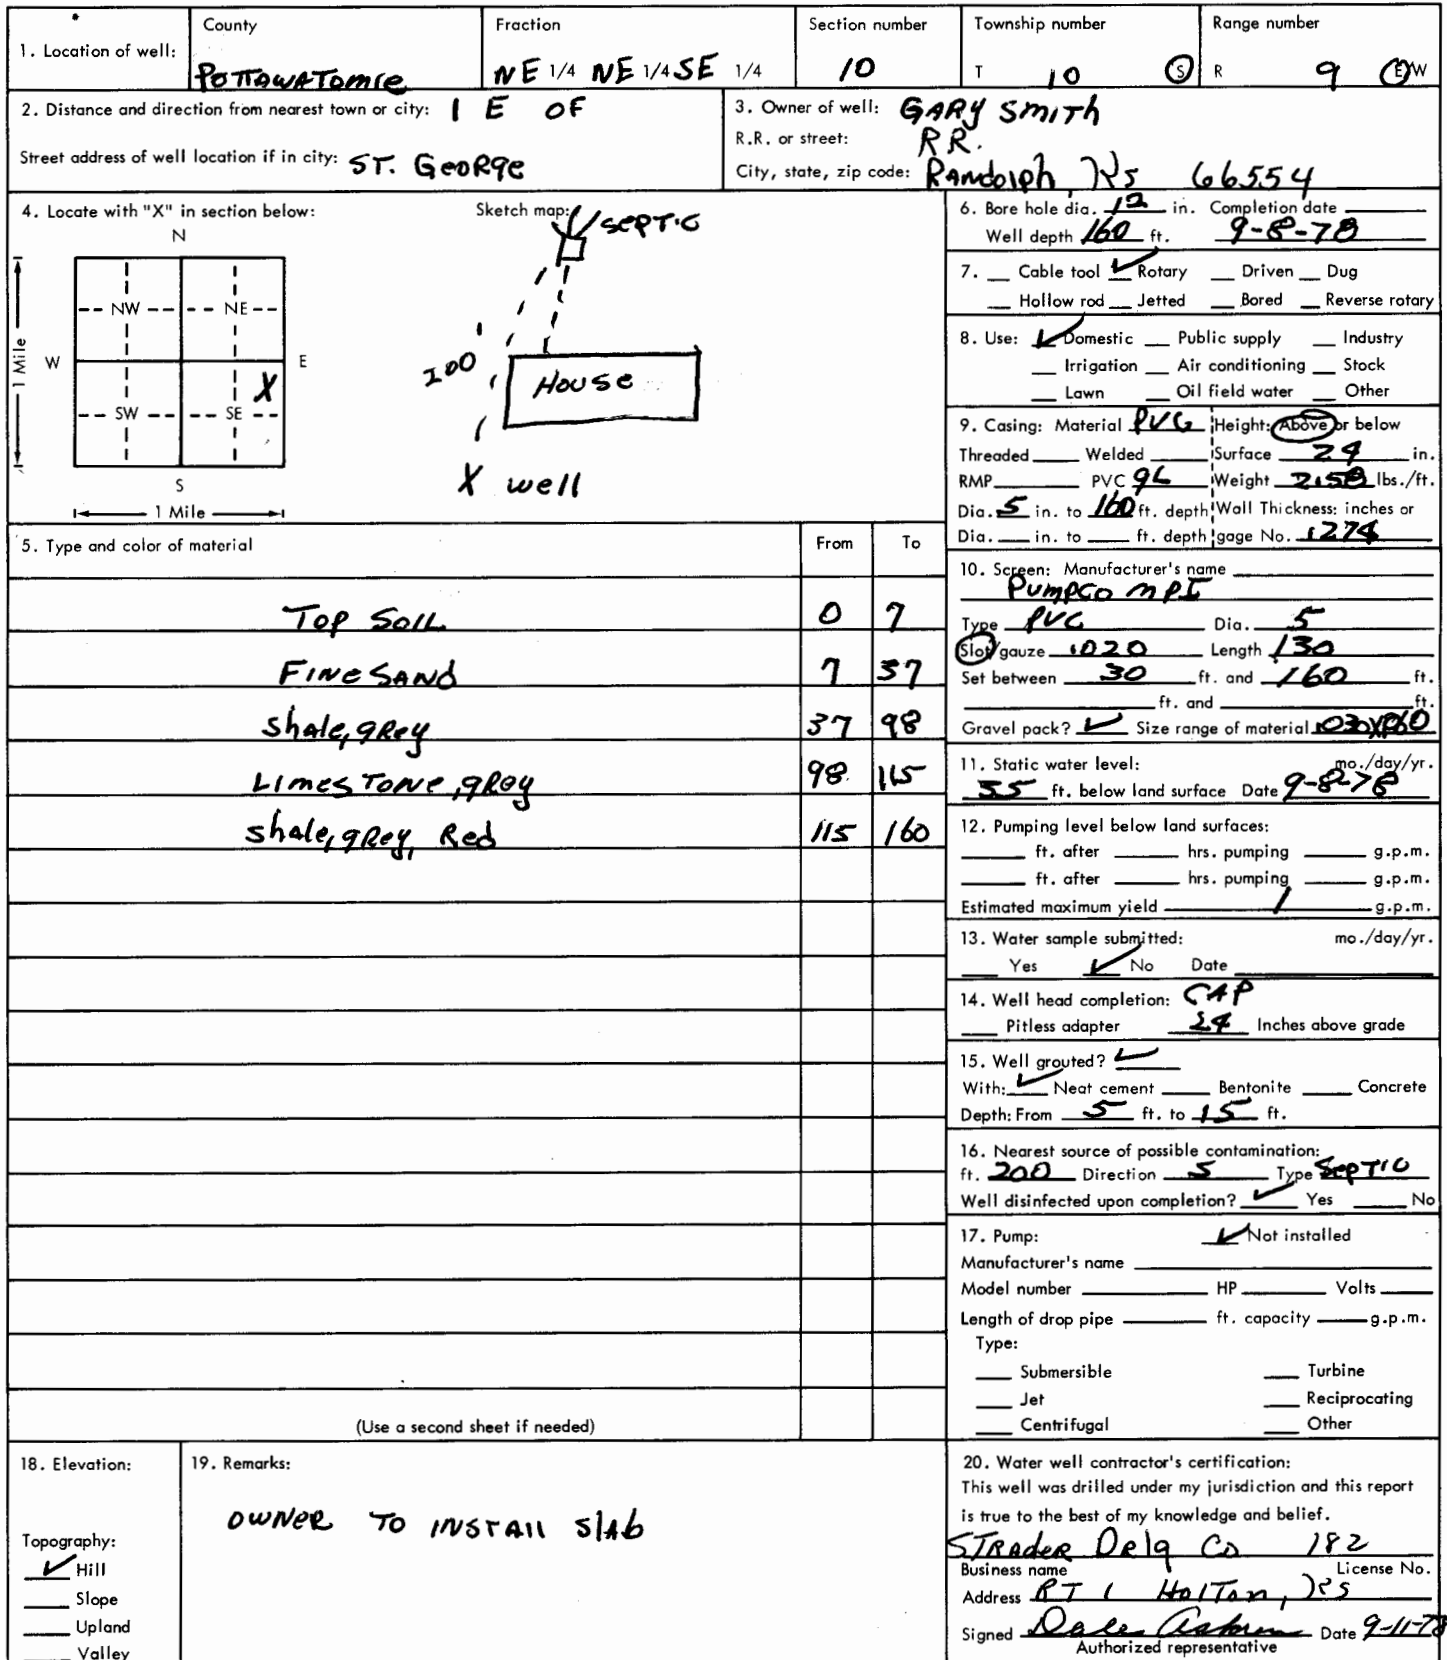 County Fraction Section number Township number Range number
1. Location of well: POTTAWATOMIE NE 1/4 NE 1/4 SE 1/4 10 T 10 S R 9 E/W
2. Distance and direction from nearest town or city: 1 E OF
Street address of well location if in city: ST. GEORGE
3. Owner of well: GARY SMITH
R.R. or street: R.R.
City, state, zip code: Randolph, Ks 66554
4. Locate with "X" in section below:
N
NW NE
W E
X
SW SE
S
1 Mile
1 Mile
Sketch map:
SEPTIC
200'
HOUSE
X well
5. Type and color of material From To
TOP SOIL 0 7
FINE SAND 7 37
shale, grey 37 98
LIMESTONE, grey 98 115
shale, grey, Red 115 160
(Use a second sheet if needed)
6. Bore hole dia. 12 in. Completion date
Well depth 160 ft. 9-8-78
7. Cable tool ✓ Rotary Driven Dug
Hollow rod Jetted Bored Reverse rotary
8. Use: ✓ Domestic Public supply Industry
Irrigation Air conditioning Stock
Lawn Oil field water Other
9. Casing: Material PVC Height: Above or below
Threaded Welded Surface 24 in.
RMP PVC GL Weight 2.58 lbs./ft.
Dia. 5 in. to 160 ft. depth Wall Thickness: inches or
Dia. in. to ft. depth gage No. .274
10. Screen: Manufacturer's name
PUMPCO MPI
Type PVC Dia. 5
Slot/gauze .020 Length 130
Set between 30 ft. and 160 ft.
ft. and ft.
Gravel pack? ✓ Size range of material .030X.060
11. Static water level: mo./day/yr.
55 ft. below land surface Date 9-8-78
12. Pumping level below land surfaces:
ft. after hrs. pumping g.p.m.
ft. after hrs. pumping g.p.m.
Estimated maximum yield 1 g.p.m.
13. Water sample submitted: mo./day/yr.
Yes ✓ No Date
14. Well head completion: CAP
Pitless adapter 24 Inches above grade
15. Well grouted? ✓
With: ✓ Neat cement Bentonite Concrete
Depth: From 5 ft. to 15 ft.
16. Nearest source of possible contamination:
ft. 200 Direction S Type SEPTIC
Well disinfected upon completion? ✓ Yes No
17. Pump: ✓ Not installed
Manufacturer's name
Model number HP Volts
Length of drop pipe ft. capacity g.p.m.
Type:
Submersible Turbine
Jet Reciprocating
Centrifugal Other
18. Elevation:
Topography:
✓ Hill
Slope
Upland
Valley
19. Remarks:
OWNER TO INSTALL Slab
20. Water well contractor's certification:
This well was drilled under my jurisdiction and this report
is true to the best of my knowledge and belief.
STRADER Drlg Co 182
Business name License No.
Address RT 1 Holton, Ks
Signed Dale Date 9-11-78
Authorized representative